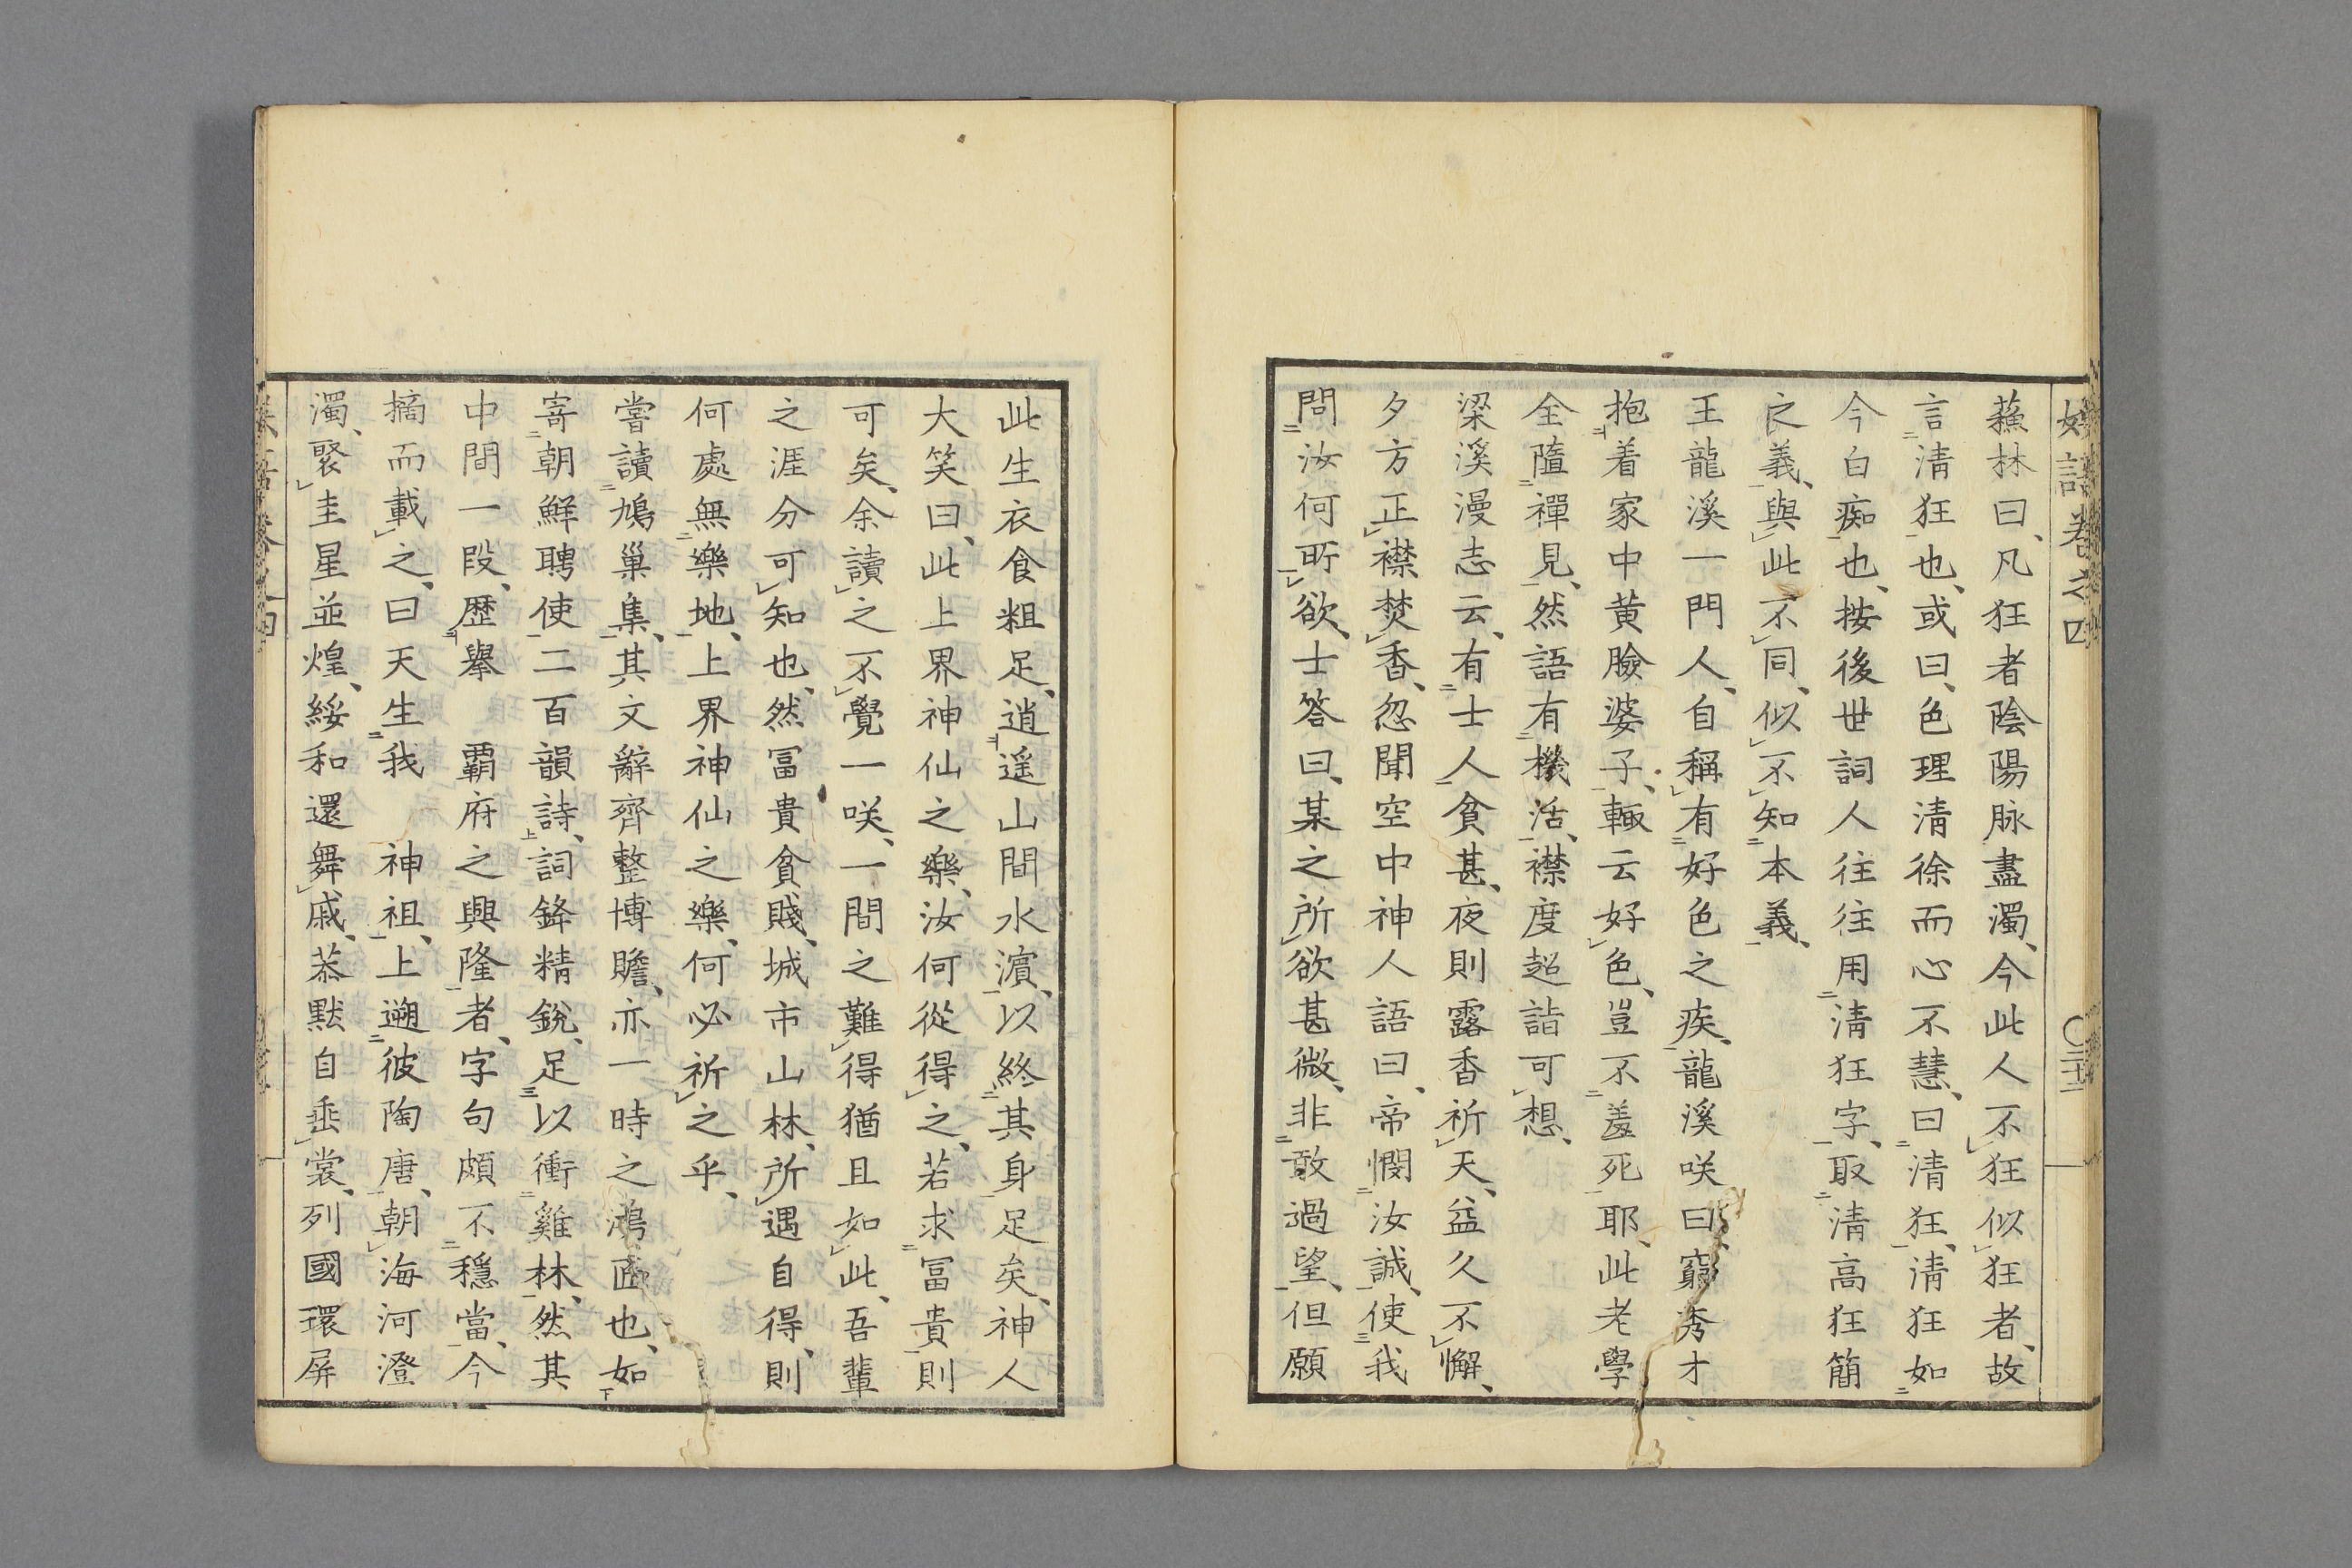 蘓林曰、凡狂者陰陽脉盡濁、今此人不狂似狂者、故
言清狂也、或曰、色理清徐而心不慧、曰清狂、清狂如
今白痴也、按後世詞人往往用清狂字、取清高狂簡
之義、與此不同、似不知本義、
王龍溪一門人、自稱有好色之疾、龍溪咲曰、窮秀才
抱着家中黄臉婆子、輙云好色、豈不羞死耶、此老學
全隨禪見、然語有機活、襟度超詣可想、
梁溪漫志云、有士人貧甚、夜則露香祈天、益久不懈、
夕方正襟焚香、忽聞空中神人語曰、帝憫汝誠、使我
問汝何所欲、士答曰、某之所欲甚微、非敢過望、但願
此生衣食粗足、逍遥山間水濵、以終其身足矣、神人
大笑曰、此上界神仙之樂、汝何從得之、若求冨貴則
可矣、余讀之不覺一咲、一間之難得猶且如此、吾輩
之涯分可知也、然冨貴貧賤、城市山林、所遇自得、則
何處無樂地、上界神仙之樂、何必祈之乎、
嘗讀鳩巢集、其文辭齊整博贍、亦一時之鴻匠也、如
寄朝鮮聘使二百韻詩、詞鋒精銳、足以衝雞林、然其
中間一段、歴擧　覇府之興隆者、字句頗不穩當、今
摘而載之、曰天生我　神祖、上遡彼陶唐、朝海河澄
濁、聚圭星並煌、綏和還舞戚、恭默自垂裳、列國環屏